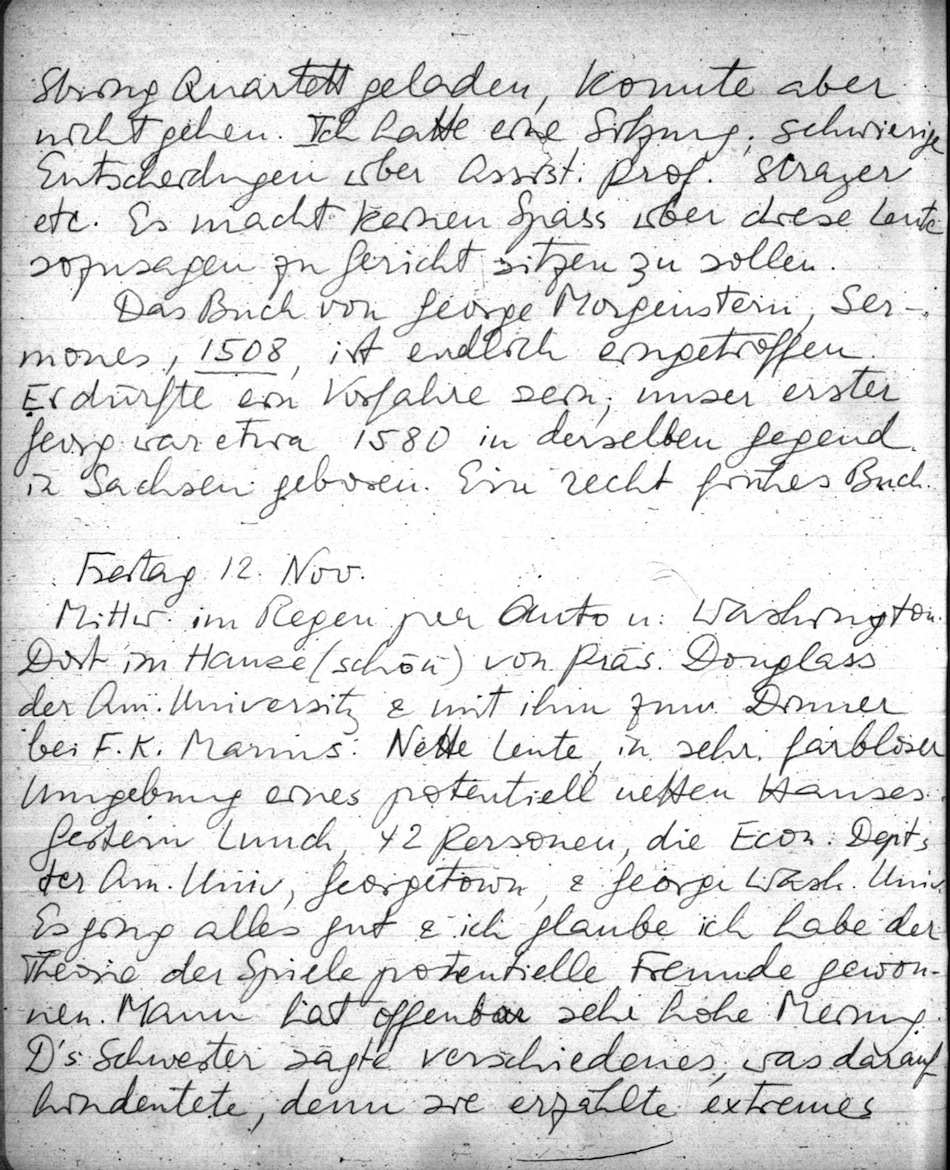 String Quartett geladen, konnte aber
nicht gehen. Ich hatte eine Sitzung, schwierige
Entscheidungen über Assist. Prof. Strazer
etc. Es macht keinen Spass über diese Leute
sozusagen zu Gericht sitzen zu sollen.
Das Buch von George Morgenstern, Ser-
mones, 1508, ist endlich eingetroffen.
Er dürfte ein Vorfahre sein; unser erster
Georg war etwa 1580 in derselben Gegend
in Sachsen geboren. Ein recht frühes Buch.
Freitag 12. Nov.
Mittw. im Regen per Auto n. Washington.
Dort im Hause (schön) von Präs. Douglass
der Am. University & mit ihm zum Dinner
bei F.K. Manns. Nette Leute, in sehr farbloser
Umgebung eines potentiell netten Hauses.
Gestern Lunch, 42 Personen, die Econ. Depts
der Am. Univ, Georgetown, & George Wash. Univ.
Es ging alles gut & ich glaube ich habe der
Theorie der Spiele potentielle Freunde gewon-
nen. Mann hat offenbar sehr hohe Meinung.
D's Schwester sagte verschiedenes, was darauf
hindeutete, denn sie erzählte extremes